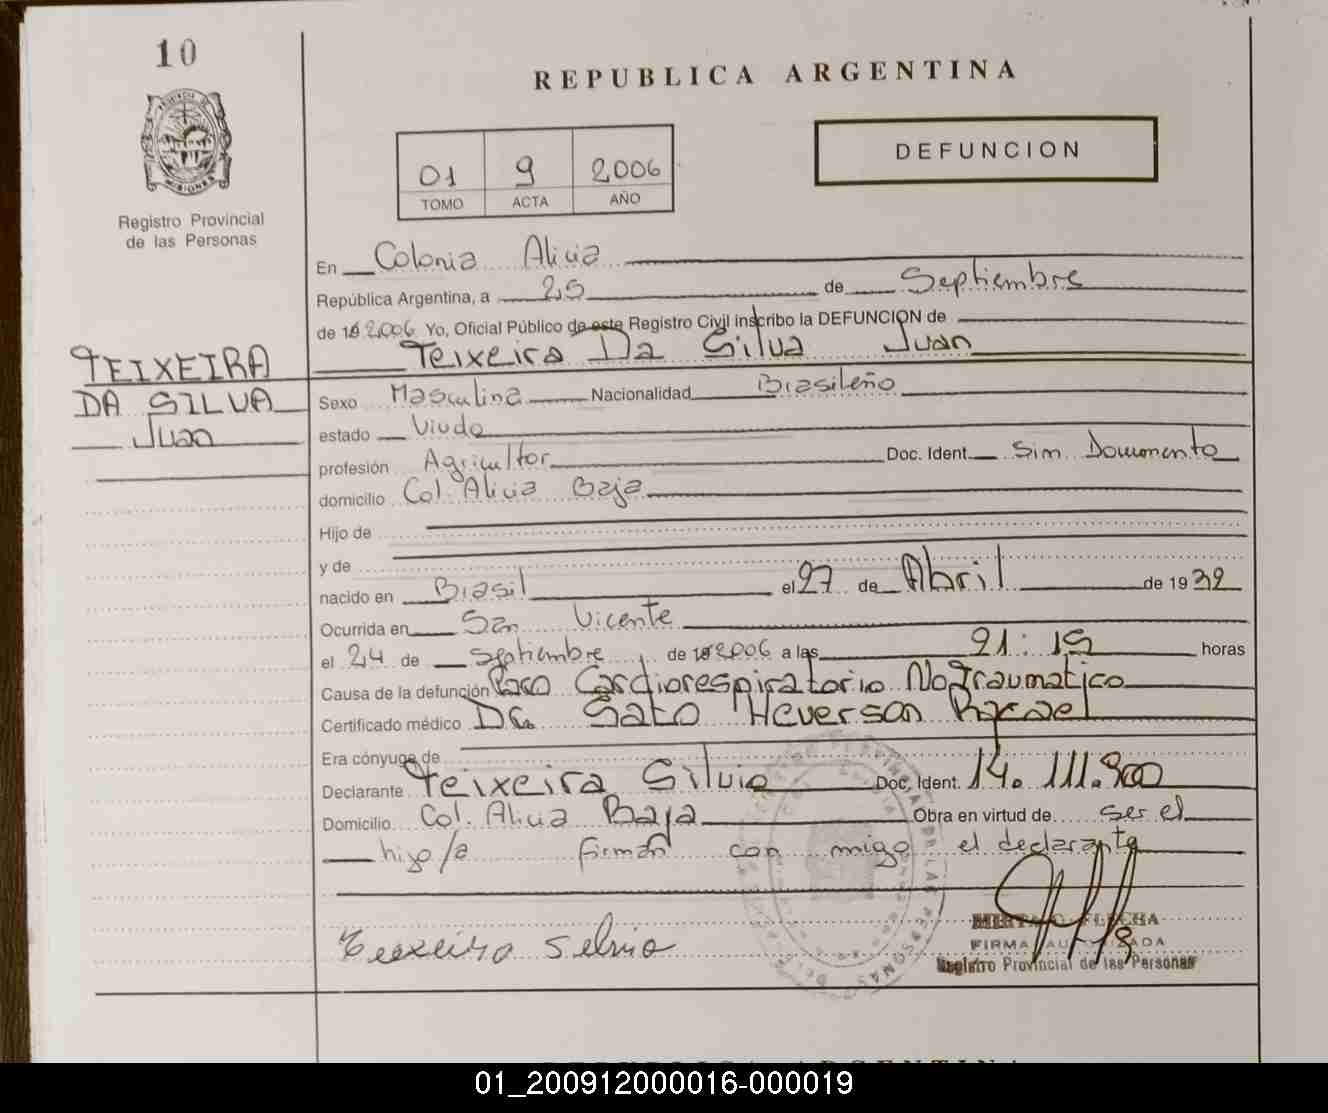 10
REPUBLICA ARGENTINA
DEFUNCION
01 9 2006
TOMO ACTA AÑO
Registro Provincial
de las Personas
En Colonia Alicia
República Argentina, a 25 de Septiembre
de 2006 Yo, Oficial Público de este Registro Civil inscribo la DEFUNCION de
Teixeira Da Silva Juan
TEIXEIRA
DA SILVA
Juan
Sexo Masculina Nacionalidad Brasileño
estado Viudo
profesión Agricultor Doc. Ident. Sin Documento
domicilio Col. Alicia Baja
Hijo de
y de
nacido en Brasil el 27 de Abril de 1932
Ocurrida en San Vicente
el 24 de Septiembre de 2006 a las 21:15 horas
Causa de la defunción Paro Cardiorespiratorio No Traumatico
Certificado médico Dr. Sato Heverson Rafael
Era cónyuge de
Declarante Teixeira Silvio Doc. Ident. 14.111.900
Domicilio Col. Alicia Baja Obra en virtud de ser el
hijo/a firman con migo el declarante
Teixeira Silvio
FIRMA
Registro Provincial de las Personas
REPUBLICA ARGENTINA
01_200912000016-000019